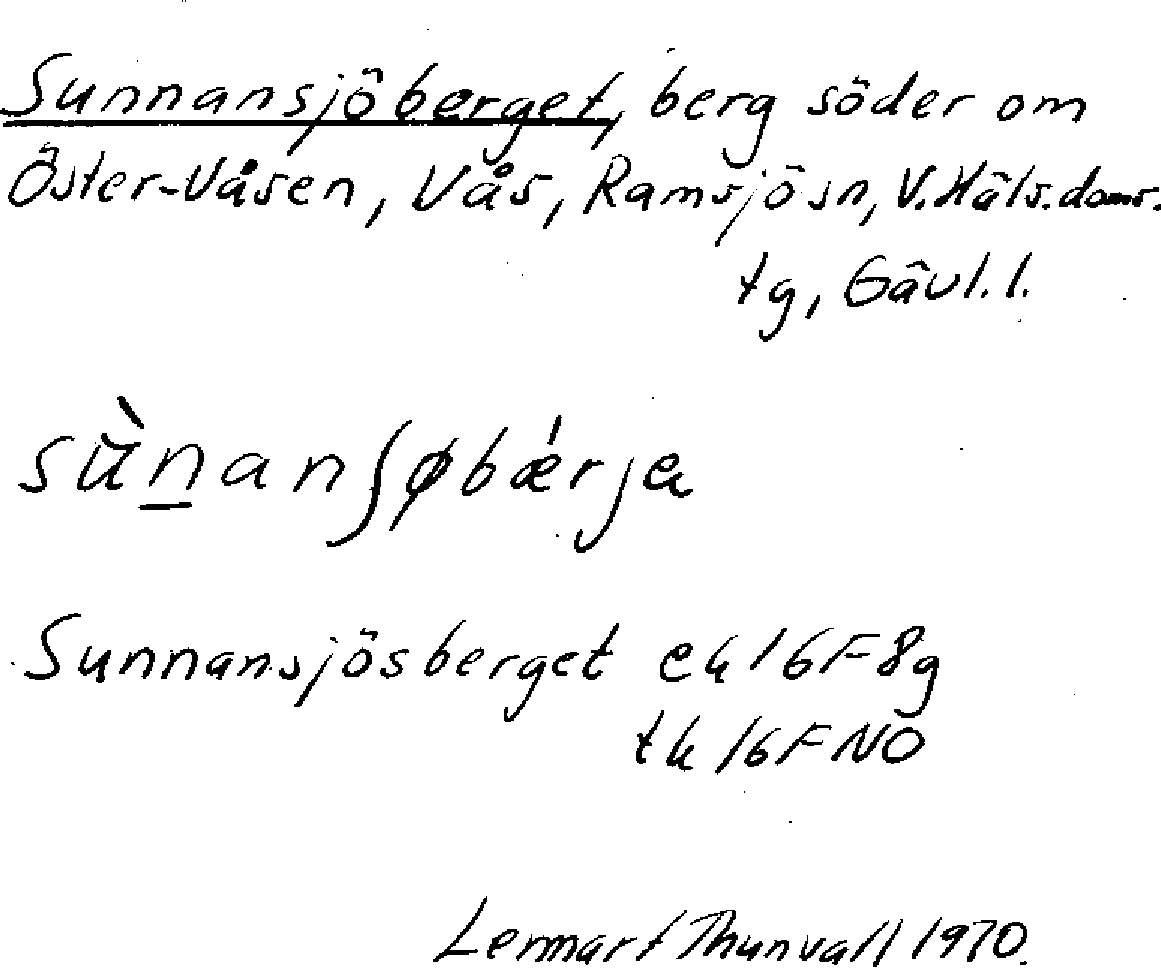 Sunnansjöberget, berg söder om
Öster-Våsen, Vås, Ramsjö sn, V. Häls. doms.
tg, Gävl. l.
sùnanʃøbǽrja
Sunnansjösberget ek 16F8g
tk 16F NO
Lennart Thunvall 1970.